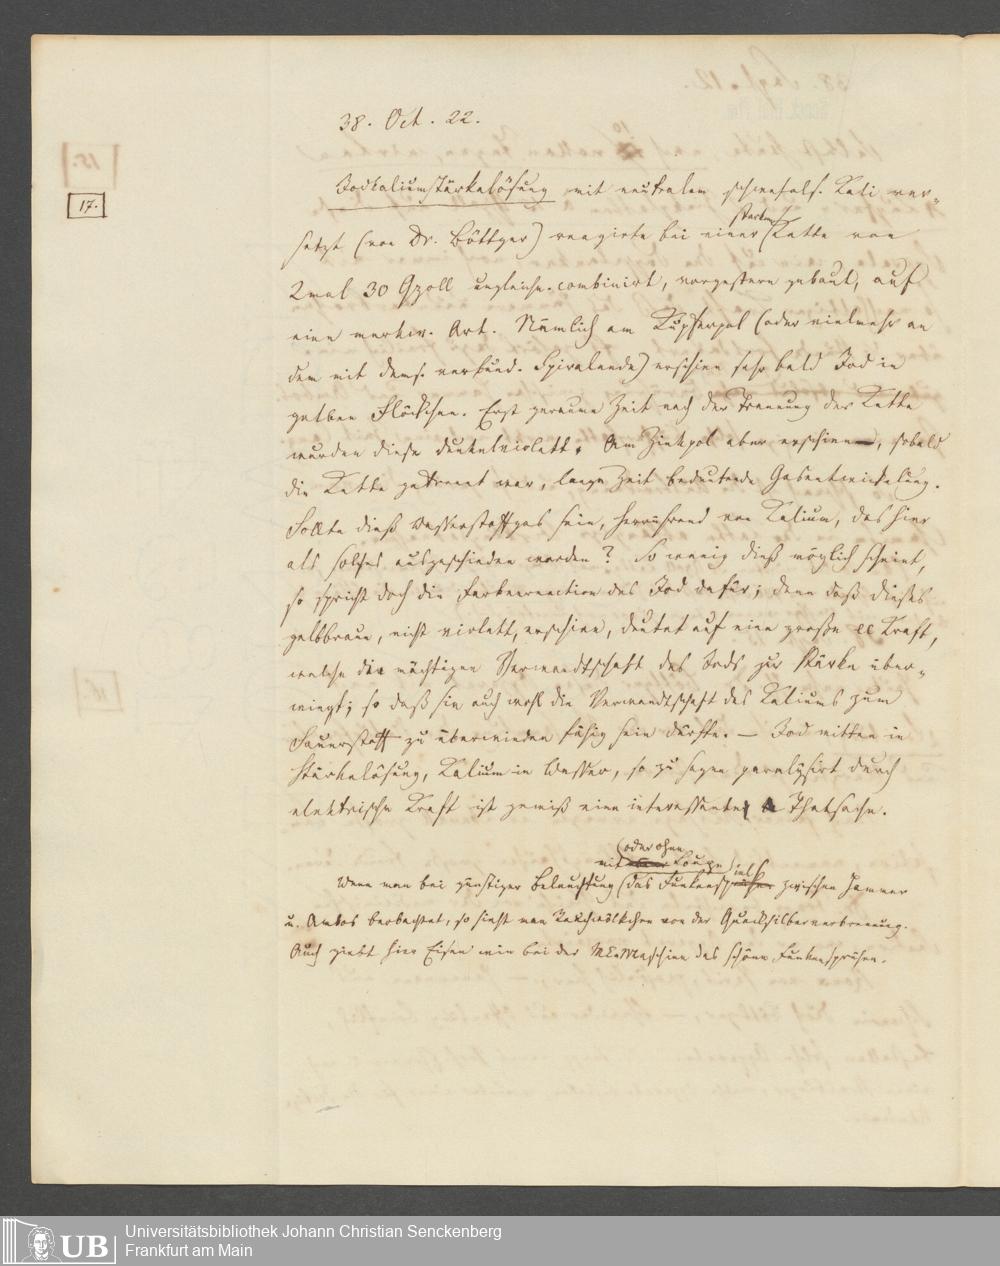 38. Oct. 22.
17.
Jodkaliumstärkelösung mit neutralem schwefels. Kali ver-
setzt (von Dr. Böttger) reagirte bei einer (starken) Kette von
2mal 30 Gzoll ungleichn. combinirt, vorgestern gebaut, auf
eine merkw. Art. Nämlich am Kupferpol (oder vielmehr an
dem mit dems. verbund. Spiralende) erschien sehr bald Jod in
gelben Flöckchen. Erst geraume Zeit nach der Trennung der Kette
wurden diese dunkelviolett. Am Zinkpol aber erschien, sobald
die Kette getrennt war, lange Zeit bedeutende Gasentwickelung.
Sollte dieß Wasserstoffgas sein, herrührend von Kalium, das hier
als solches ausgeschieden worden? So wenig dieß möglich scheint,
so spricht doch die Farbenreaction des Jod dafür; denn daß dieses
gelbbraun, nicht violett, erschien, deutet auf eine große el Kraft,
welche die mächtigen Verwandtschaft des Jods zur Stärke über-
wiegt; so daß sie auch wohl die Verwandtschaft des Kaliums zum
Sauerstoff zu überwinden fähig sein dürfte. — Jod mitten in
Stärkelösung, Kalium in Wasser, so zu sagen paralysirt durch
elektrische Kraft ist gewiß eine interessante Thatsache.
(oder ohne
mit Loupe)
Wenn man bei günstiger Beleuchtung das Funkenspiel zwischen Hammer
u. Ambos beobachtet, so sieht man Rauchwölkchen von der Quecksilberverbrennung.
Auch giebt hier Eisen wie bei der Maschine das schöne Funkensprühen.
Universitätsbibliothek Johann Christian Senckenberg
Frankfurt am Main
UB